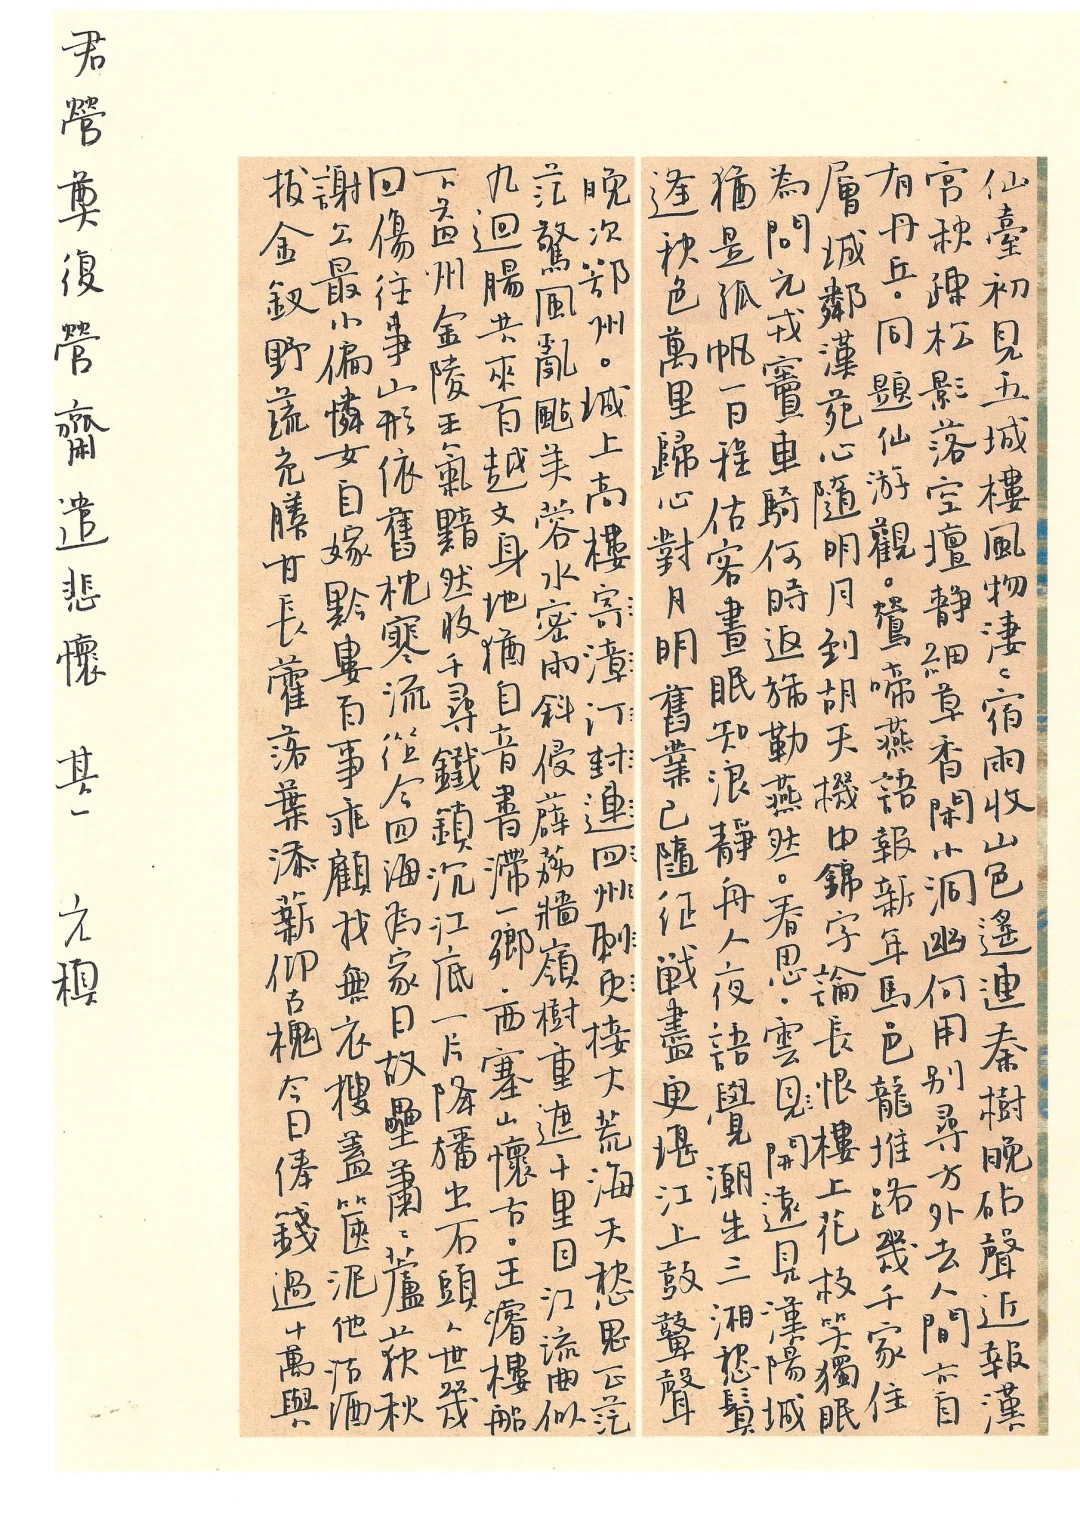 仙臺初見五城樓風物淒〻宿雨收山色遙連秦樹晚砧聲近報漢
宮秋疎松影落空壇靜細草香閑小洞幽何用别尋方外去人間亦自
有丹丘。同題仙游觀。鶯啼燕語報新年馬邑龍堆路幾千家住
層城鄰漢苑心隨明月到胡天機中錦字論長恨樓上花枝笑獨眠
為問元戎竇車騎何時返旆勒燕然。春思。雲見開遠見漢陽城
猶是孤帆一日程估客晝眠知浪靜舟人夜語覺潮生三湘愁鬢
逢秋色萬里歸心對月明舊業已隨征戰盡更堪江上鼓鼙聲
晚次鄂州。城上高樓寄漳汀封連四州刺史接大荒海天愁思正茫
茫驚風亂颭芙蓉水密雨斜侵薜荔牆嶺樹重遮千里目江流曲似
九迴腸共來百越文身地猶自音書滯一鄉.西塞山懷古。王濬樓船
下益州金陵王氣黯然收千尋鐵鎖沉江底一片降旛出石頭人世幾
回傷往事山形依舊枕寒流從今四海為家日故壘蕭〻蘆荻秋
謝公最小偏憐女自嫁黔婁百事乖顧我無衣搜蓋篋泥他沽酒
拔金釵野蔬充膳甘長藿落葉添薪仰古槐今日俸錢過十萬與
君營奠復營齋遣悲懷 其一 元稹